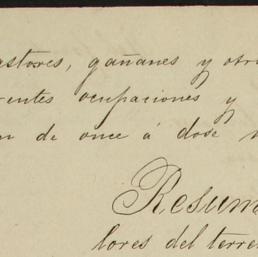 astores, gañanes y otr
rentes ocupaciones y
n de once á dose
Resum
lores del terre